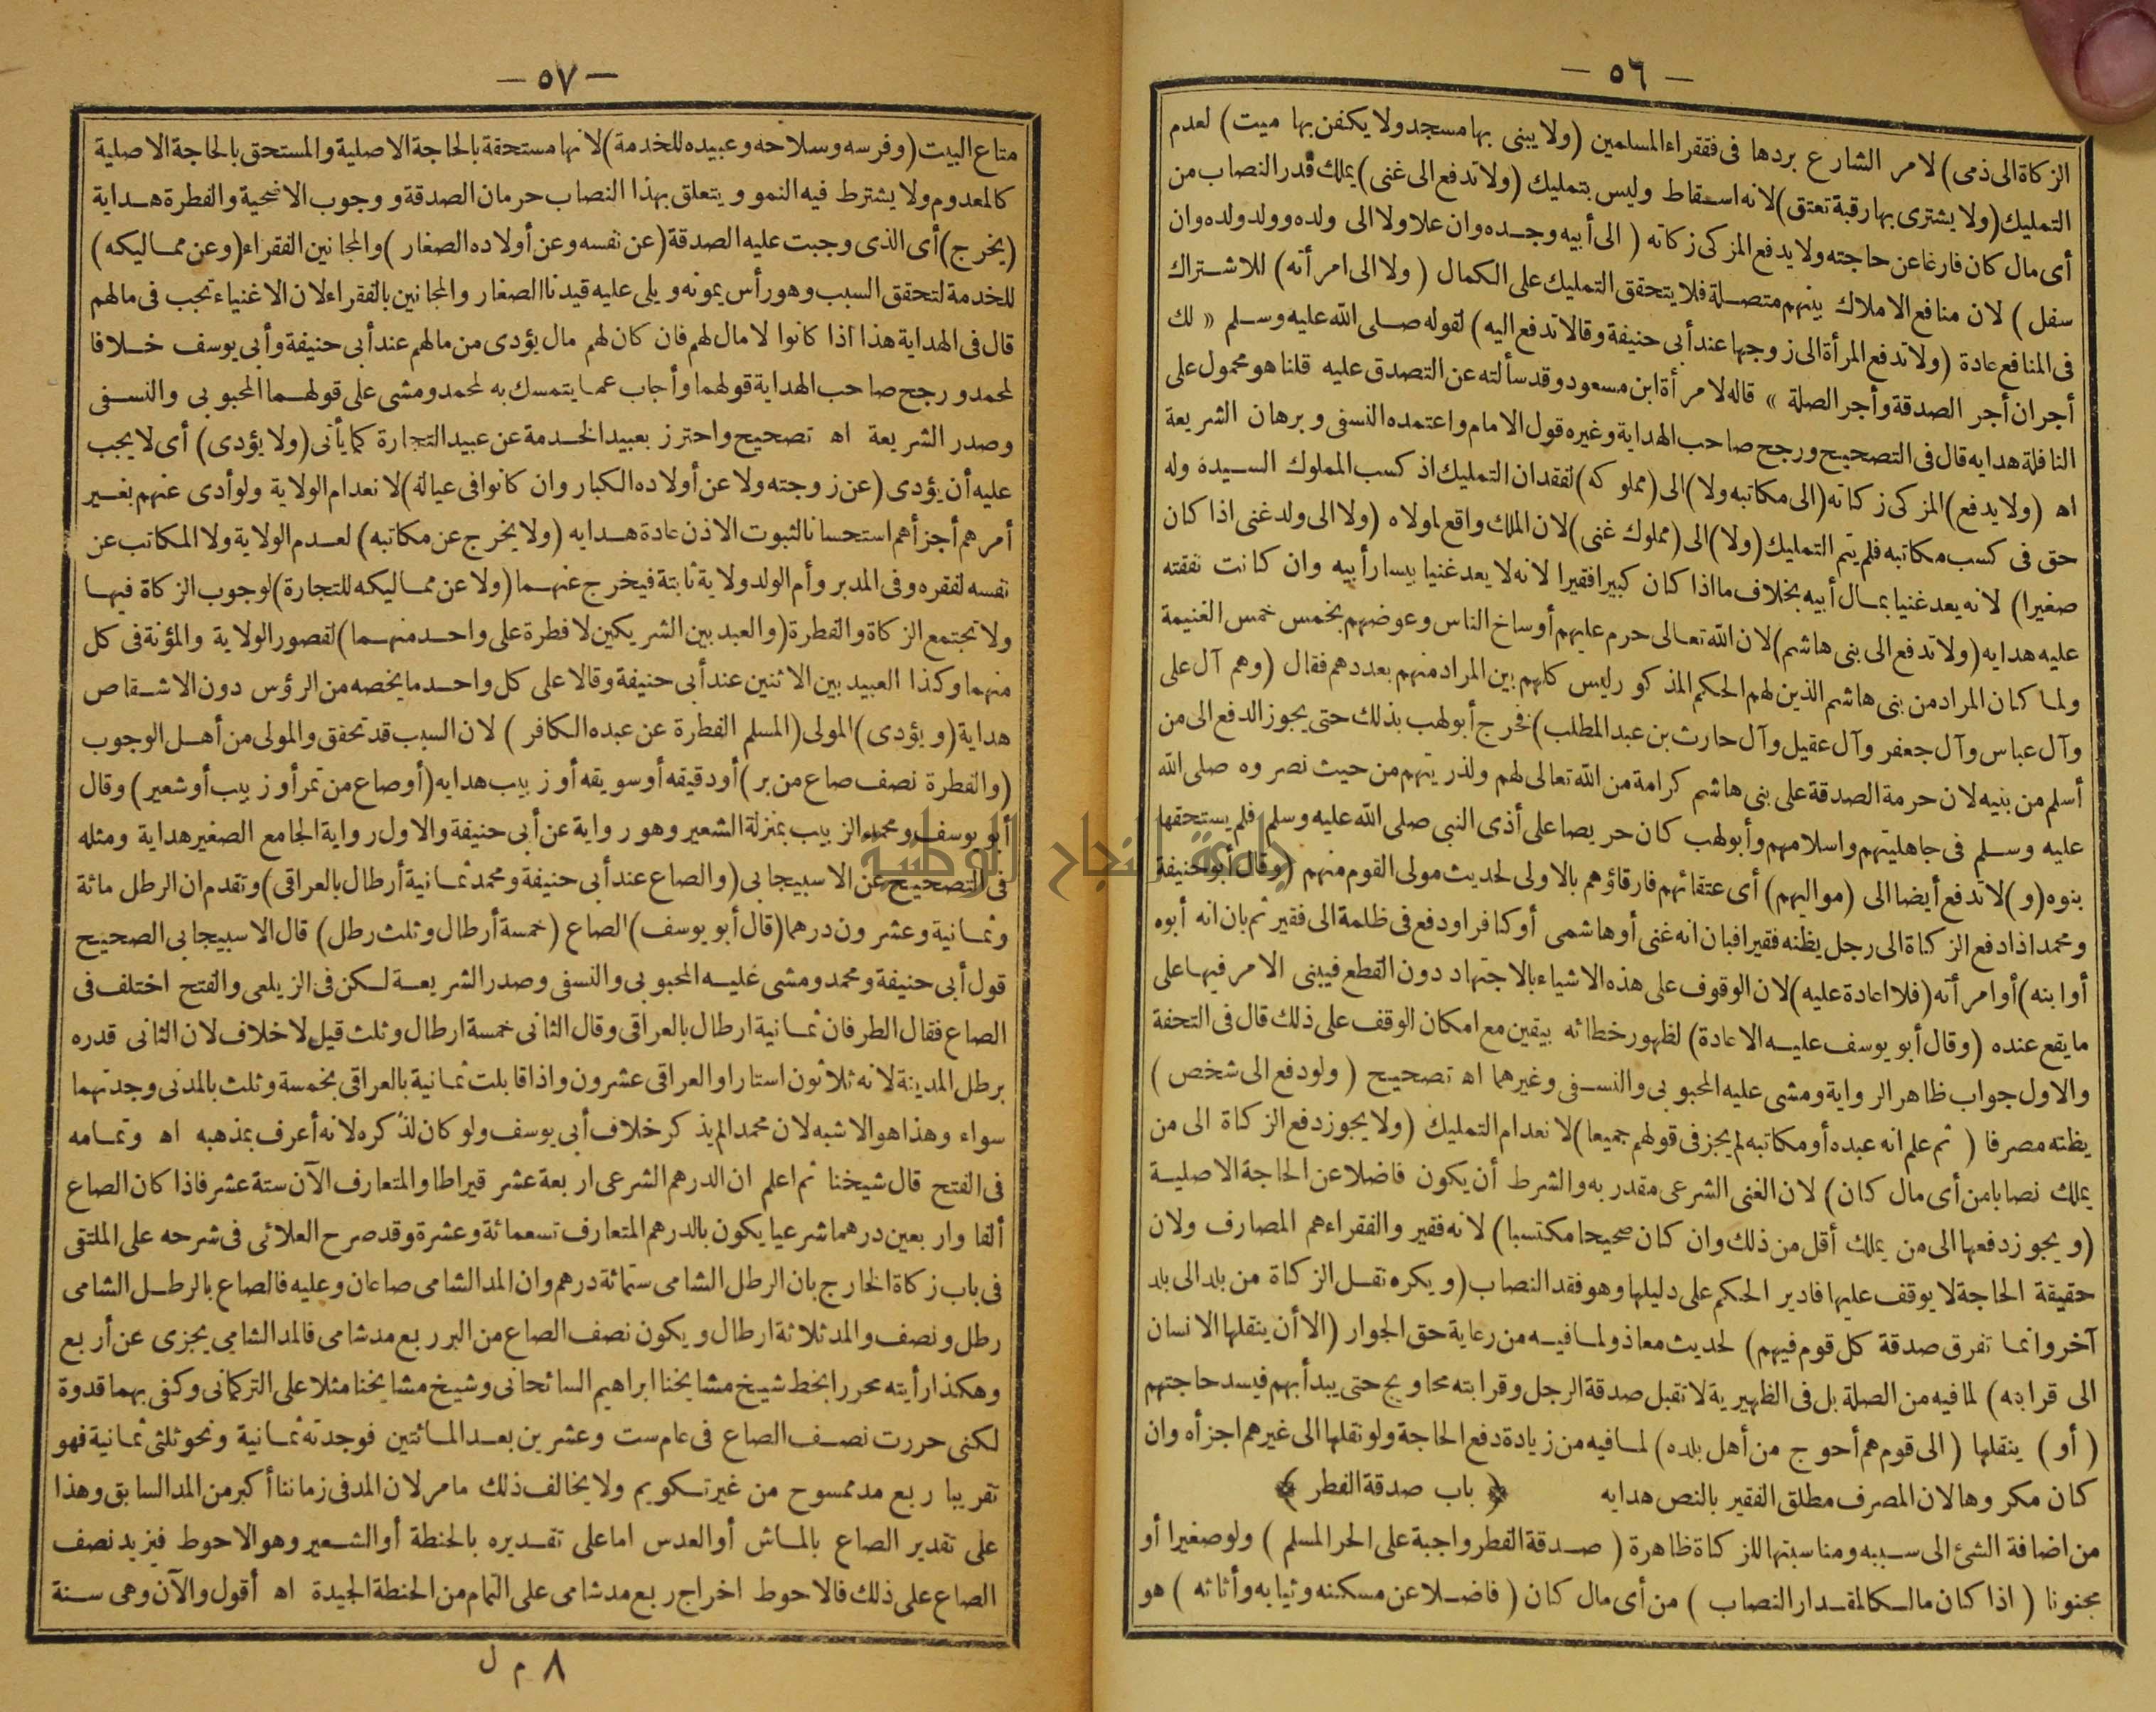 — ٥٦ —
الزكاة الى ذمى) لامر الشارع بردها فى فقراء المسلمين (ولا يبنى بها مسجد ولا يكفن بها ميت) لعدم
التمليك (ولا يشترى بها رقبة تعتق) لانه اسقاط وليس بتمليك (ولا تدفع الى غنى) يملك قدر النصاب من
أى مال كان فارغا عن حاجته ولا يدفع المزكى زكاته ( الى أبيه وجده وان علا ولا الى ولده وولد ولده وان
سفل ) لان منافع الاملاك بينهم متصلة فلا يتحقق التمليك على الكمال ( ولا الى امرأته) للاشتراك
فى المنافع عادة (ولا تدفع المرأة الى زوجها عند أبى حنيفة وقالا تدفع اليه) لقوله صلى الله عليه وسلم « لك
أجران أجر الصدقة وأجر الصلة » قاله لامرأة ابن مسعود وقد سألته عن التصدق عليه قلنا هو محمول على
النافلة هدايه قال فى التصحيح ورجح صاحب الهداية وغيره قول الامام واعتمده النسفى وبرهان الشريعة
اه (ولا يدفع) المزكى زكاته (الى مكاتبه ولا) الى (مملوكه) لفقدان التمليك اذ كسب المملوك لسيده وله
حق فى كسب مكاتبه فلم يتم التمليك (ولا) الى (مملوك غنى) لان الملك واقع لمولاه (ولا الى ولد غنى اذا كان
صغيرا) لانه يعد غنيا بمال أبيه بخلاف ما اذا كان كبيرا فقيرا لانه لا يعد غنيا بيسار أبيه وان كانت نفقته
عليه هدايه (ولا تدفع الى بنى هاشم) لان الله تعالى حرم عليهم أوساخ الناس وعوضهم بخمس خمس الغنيمة
ولما كان المراد من بنى هاشم الذين لهم الحكم المذكور ليس كلهم بين المراد منهم بعددهم فقال (وهم آل على
وآل عباس وآل جعفر وآل عقيل وآل حارث بن عبد المطلب) نخرج أبو لهب بذلك حتى يجوز الدفع الى من
أسلم من بنيه لان حرمة الصدقة على بنى هاشم كرامة من الله تعالى لهم ولذريتهم من حيث نصروه صلى الله
عليه وسلم فى جاهليتهم واسلامهم وأبو لهب كان حريصا على أذى النبى صلى الله عليه وسلم فلم يستحقها
بنوه (و) لا تدفع أيضا الى (مواليهم) أى عتقائهم فارقاؤهم بالاولى لحديث مولى القوم منهم (وقال أبو حنيفة
ومحمد اذا دفع الزكاة الى رجل يظنه فقيرا فبان انه غنى أو هاشمى أو كافر او دفع فى ظلمة الى فقير ثم بان انه أبوه
أو ابنه) أو امرأته (فلا اعادة عليه) لان الوقوف على هذه الاشياء بالاجتهاد دون القطع فيبنى الامر فيها على
ما يقع عنده (وقال أبو يوسف عليه الاعادة) لظهور خطائه بيقين مع امكان الوقف على ذلك قال فى التحفة
والاول جواب ظاهر الرواية ومشى عليه المحبوبى والنسفى وغيرهما اه تصحيح (ولو دفع الى شخص )
يظنه مصرفا ( ثم علم انه عبده أو مكاتبه لم يجز فى قولهم جميعا) لانعدام التمليك (ولا يجوز دفع الزكاة الى من
يملك نصابا من أى مال كان) لان الغنى الشرعى مقدر به والشرط أن يكون فاضلا عن الحاجة الاصلية
(ويجوز دفعها الى من يملك أقل من ذلك وان كان صحيحا مكتسبا) لانه فقير والفقراء هم المصارف ولان
حقيقة الحاجة لا يوقف عليها فادير الحكم على دليلها وهو فقد النصاب (ويكره نقل الزكاة من بلد الى بلد
آخر وانما تفرق صدقة كل قوم فيهم) لحديث معاذ ولما فيه من رعاية حق الجوار (الا أن ينقلها الانسان
الى قرابته) لما فيه من الصلة بل فى الظهيرية لا تقبل صدقة الرجل وقرابته محاويج حتى يبدأ بهم فيسد حاجتهم
( أو) ينقلها ( الى قوم هم أحوج من أهل بلده) لما فيه من زيادة دفع الحاجة ولو نقلها الى غيرهم اجزأه وان
كان مكروها لان المصرف مطلق الفقير بالنص هدايه ﴿ باب صدقة الفطر ﴾
من اضافة الشئ الى سببه ومناسبتها للزكاة ظاهرة ( صدقة الفطر واجبة على الحر المسلم ) ولو صغيرا أو
مجنونا ( اذا كان مالكا لمقدار النصاب ) من أى مال كان ( فاضلا عن مسكنه وثيابه وأثاثه ) هو
— ٥٧ —
متاع البيت (وفرسه وسلاحه وعبيده للخدمة) لانها مستحقة بالحاجة الاصلية والمستحق بالحاجة الاصلية
كالمعدوم ولا يشترط فيه النمو ويتعلق بهذا النصاب حرمان الصدقة ووجوب الاضحية والفطرة هداية
(يخرج) أى الذى وجبت عليه الصدقة (عن نفسه وعن أولاده الصغار ) والمجانين الفقراء (وعن مماليكه)
للخدمة لتحقق السبب وهو رأس يمونه ويلى عليه قيدنا الصغار والمجانين بالفقراء لان الاغنياء تجب فى مالهم
قال فى الهداية هذا اذا كانوا لا مال لهم فان كان لهم مال يؤدى من مالهم عند أبى حنيفة وأبى يوسف خلافا
لمحمد ورجح صاحب الهداية قولهما وأجاب عما يتمسك به لمحمد ومشى على قولهما المحبوبى والنسفى
وصدر الشريعة اه تصحيح واحترز بعبيد الخدمة عن عبيد التجارة كما يأتى (ولا يؤدى) أى لا يجب
عليه أن يؤدى (عن زوجته ولا عن أولاده الكبار وان كانوا فى عياله) لانعدام الولاية ولو أدى عنهم بغير
أمرهم أجزأهم استحسانا لثبوت الاذن عادة هدايه (ولا يخرج عن مكاتبه) لعدم الولاية ولا المكاتب عن
نفسه لفقره وفى المدبر وأم الولد ولاية ثابتة فيخرج عنهما (ولا عن مماليكه للتجارة) لوجوب الزكاة فيها
ولا تجتمع الزكاة والفطرة (والعبد بين الشريكين لا فطرة على واحد منهما) لقصور الولاية والمؤنة فى كل
منهما وكذا العبيد بين الاثنين عند أبى حنيفة وقالا على كل واحد ما يخصه من الرؤس دون الاشقاص
هداية (ويؤدى) المولى (المسلم الفطرة عن عبده الكافر ) لان السبب قد تحقق والمولى من أهل الوجوب
(والفطرة نصف صاع من بر) أو دقيقه أو سويقه أو زبيب هدايه (أو صاع من تمر أو زبيب أو شعير) وقال
أبو يوسف ومحمد الزبيب بمنزلة الشعير وهو رواية عن أبى حنيفة والاول رواية الجامع الصغير هداية ومثله
فى التصحيح عن الاسبيجابى (والصاع عند أبى حنيفة ومحمد ثمانية أرطال بالعراقى) وتقدم ان الرطل مائة
وثمانية وعشرون درهما (قال أبو يوسف) الصاع (خمسة أرطال وثلث رطل) قال الاسبيجابى الصحيح
قول أبى حنيفة ومحمد ومشى عليه المحبوبى والنسفى وصدر الشريعة لكن فى الزيلعى والفتح اختلف فى
الصاع فقال الطرفان ثمانية ارطال بالعراقى وقال الثانى خمسة ارطال وثلث قيل لا خلاف لان الثانى قدره
برطل المدينة لانه ثلاثون استارا والعراقى عشرون واذا قابلت ثمانية بالعراقى بخمسة وثلث بالمدنى وجدتهما
سواء وهذا هو الاشبه لان محمدا لم يذكر خلاف أبى يوسف ولو كان لذكره لانه أعرف بمذهبه اه وتمامه
فى الفتح قال شيخنا ثم اعلم ان الدرهم الشرعى اربعة عشر قيراطا والمتعارف الآن ستة عشر فاذا كان الصاع
ألفا واربعين درهما شرعيا يكون بالدرهم المتعارف تسعمائة وعشرة وقد صرح العلائى فى شرحه على الملتقى
فى باب زكاة الخارج بان الرطل الشامى ستمائة درهم وان المد الشامى صاعان وعليه فالصاع بالرطل الشامى
رطل ونصف والمد ثلاثة ارطال ويكون نصف الصاع من البر ربع مد شامى فالمد الشامى يجزى عن أربع
وهكذا رأيته محررا بخط شيخ مشايخنا ابراهيم السائحانى وشيخ مشايخنا منلا على التركمانى وكفى بهما قدوة
لكنى حررت نصف الصاع فى عام ست وعشرين بعد المائتين فوجدته ثمانية ونحو ثلثى ثمانية فهو
تقريبا ربع مد ممسوح من غير تكويم ولا يخالف ذلك مامر لان المد فى زماننا أكبر من المد السابق وهذا
على تقدير الصاع بالماش أو العدس اما على تقديره بالحنطة أو الشعير وهو الاحوط فيزيد نصف
الصاع على ذلك فالاحوط اخراج ربع مد شامى على التمام من الحنطة الجيدة اه أقول والآن وهى سنة
٨ م ل
جامعة النجاح الوطنية